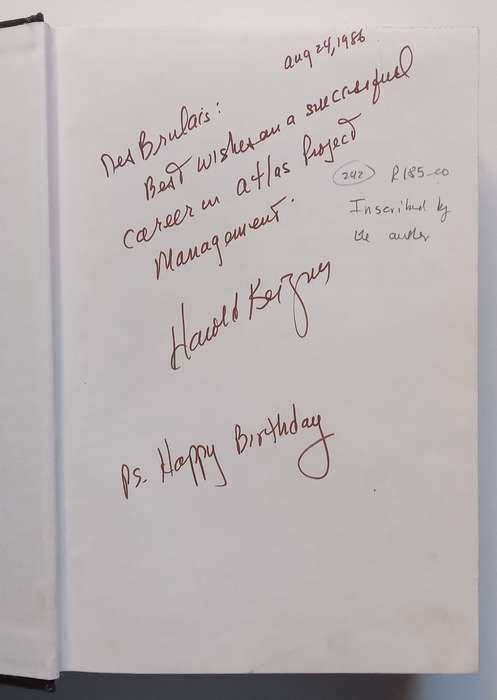 Aug 24, 1986
Des Brulais:
Best wishes on a successful
career in atlas Project
Management.
Harold Kerzner
Ps. Happy Birthday
242 R185-00
Inscribed by
the author